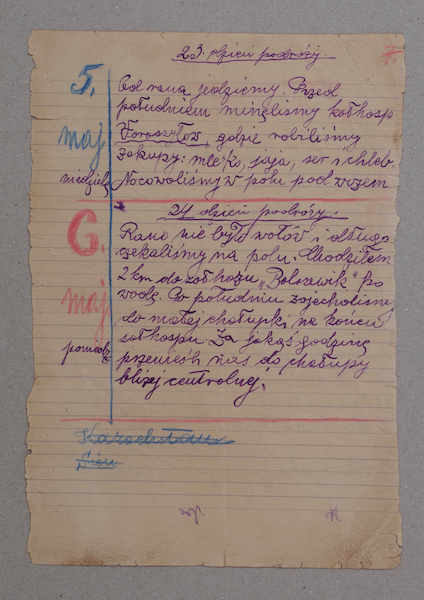 23. dzień podróży.
5.
maj
niedziela
Od rana jedziemy. Przed
południem minęliśmy kołhosp
Woroszyłów, gdzie robiliśmy
zakupy: mleko, jaja, ser i chleb.
Nocowaliśmy w polu pod wozem
24 dzień podróży.
6.
maj
Rano nie było wołów i długo
czekaliśmy na polu. Chodziłem
2 km do sołhozu „Bolszewik" po
wodę. Po południu zajechaliśmy
do małej chałupki, na końcu
sołhospu. Za jakąś godzinę
przenieśli nas do chałupy
bliżej centralnej.